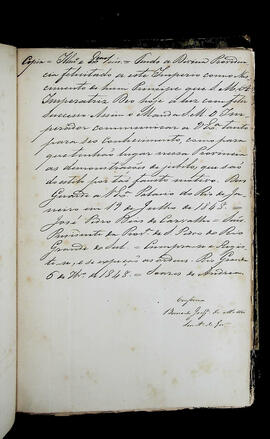 Copia = Illmo e Exmo Snr. = Tendo a Divina Providen
cia felicitado a este Imperio com o Nas
cimento de hum Principe que S. M. A
Imperatriz Deo hoje á luz com feliz
Successo: Assim o Manda S. M. O Im
perador communicar a V. Exa. tanto
para seu conhecimento, como para
que tenhão lugar nessa Provincia
as demonstrações de jubilo, que são
do estilo por tão fausto motivo. Deos
Guarde a V. Exa. Palacio do Rio de Ja
neiro em 19 de Julho de 1848 =
José Pedro Dias de Carvalho = Snr.
Presidente da Prova. de S. Pedro do Rio
Grande do Sul. = Cumpra-se e Regis
te-se, e se expeção as ordens. Rio Grande
5 de de 1848. = Soares de Andrea
Conforme